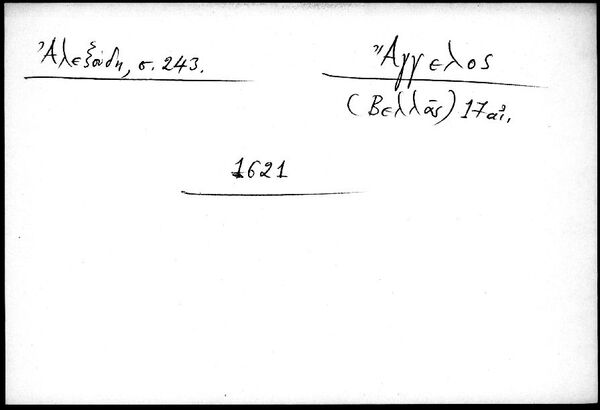 Ἀλεξούδη, σ. 243.
Ἄγγελος
(Βελλᾶς) 17 αἰ.
1621